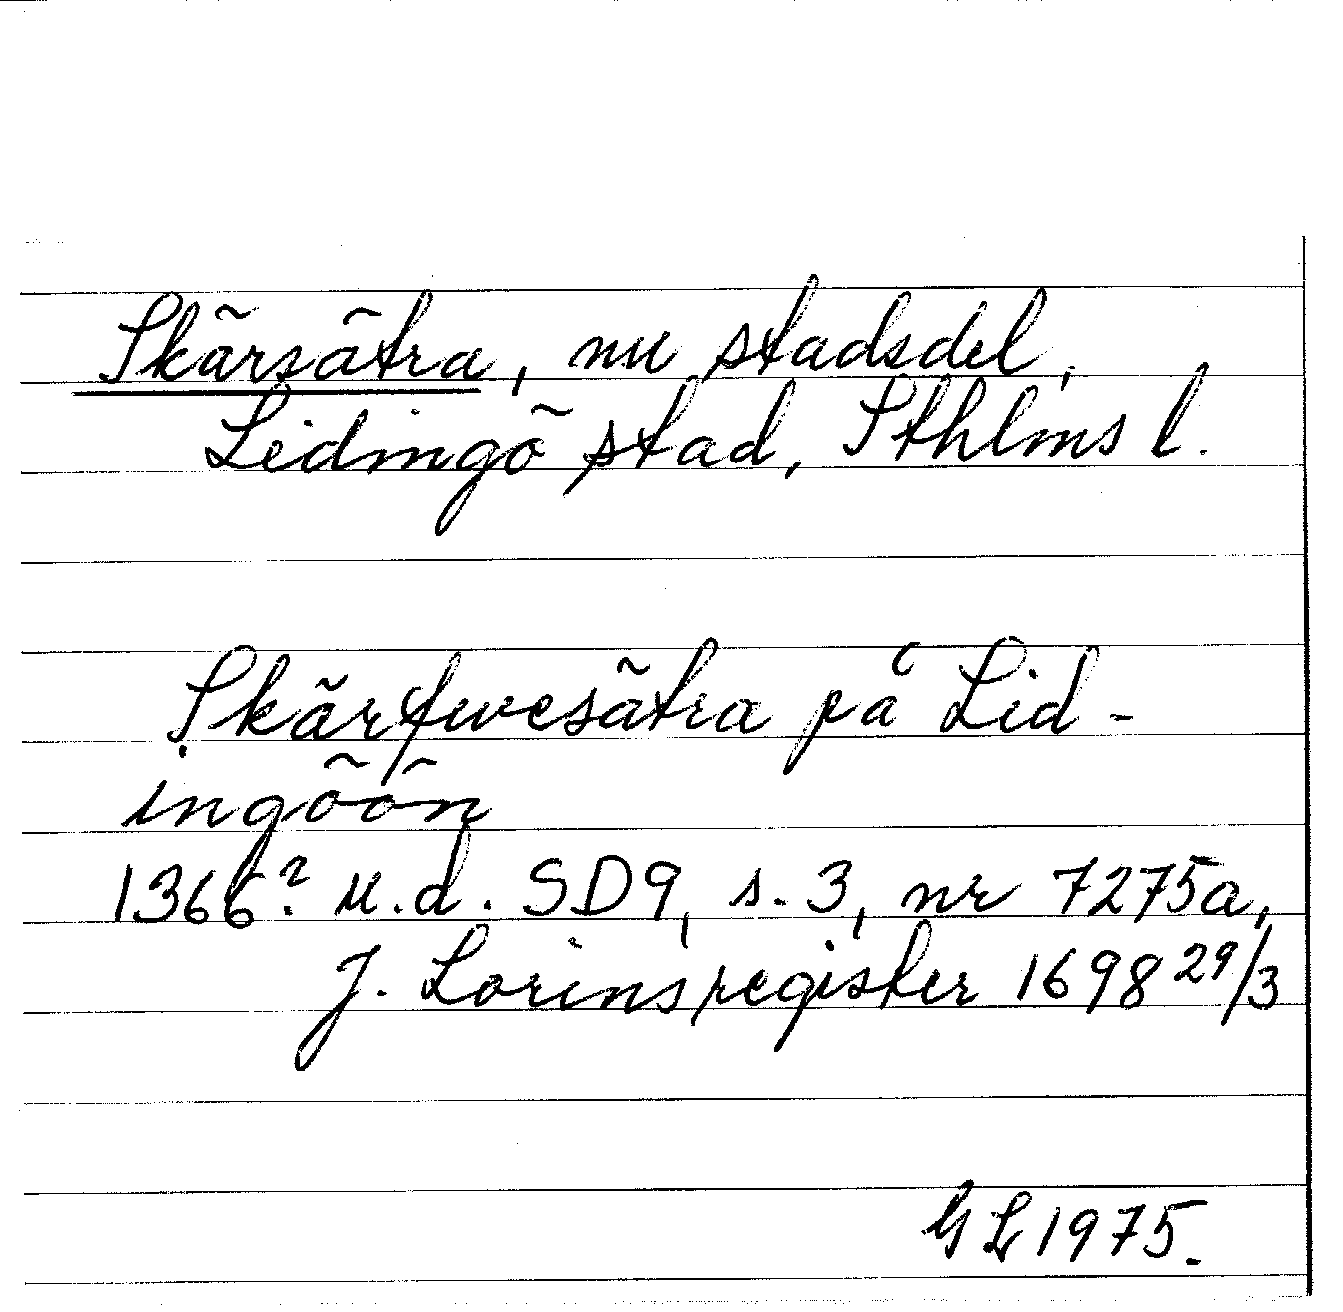 Skärsätra, nu stadsdel,
Lidingö stad, Sthlms l.
Skärfwesätra på Lid-
ingöön
1366? u.d. SD9, s. 3, nr 7275a,
J. Lorinsregister 1698 29/3
GL 1975.